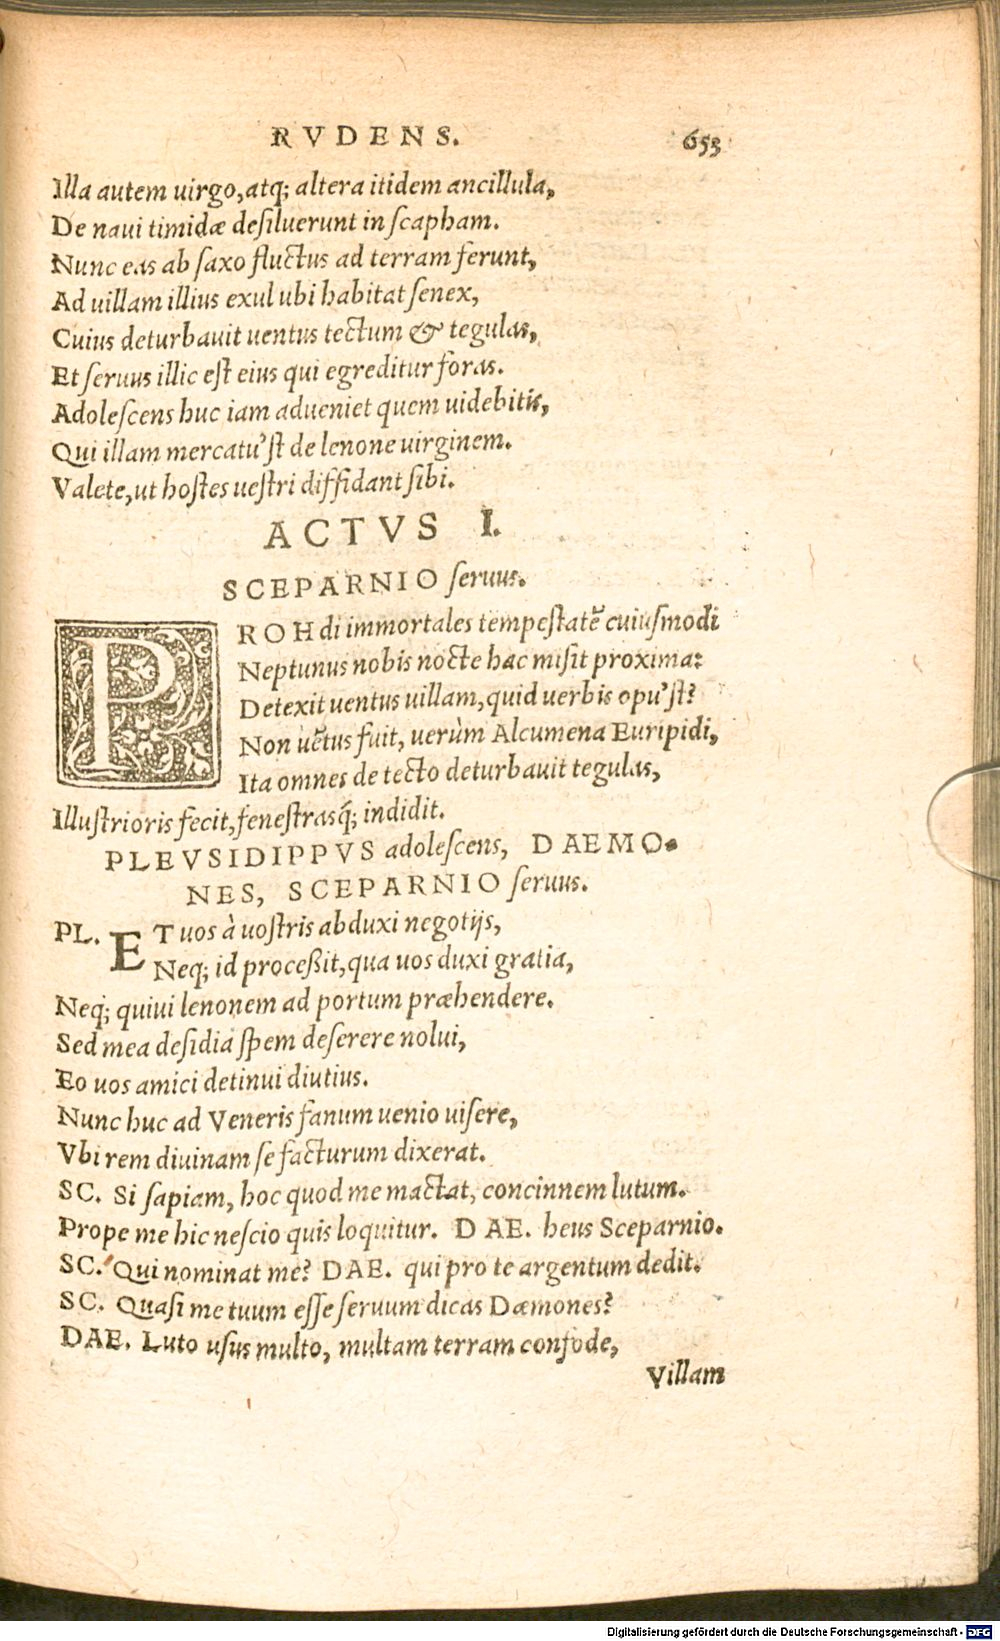 RVDENS. 653
Illa autem uirgo, atq; altera itidem ancillula,
De naui timidæ desiluerunt in scapham.
Nunc eas ab saxo fluctus ad terram ferunt,
Ad uillam illius exul ubi habitat senex,
Cuius deturbauit uentus tectum & tegulas,
Et seruus illic est eius qui egreditur foras.
Adolescens huc iam adueniet quem uidebitis,
Qui illam mercatu'st de lenone uirginem.
Valete, ut hostes uestri diffidant sibi.
ACTVS I.
SCEPARNIO seruus.
PROH di immortales tempestatē cuiusmodi
Neptunus nobis nocte hac misit proxima:
Detexit uentus uillam, quid uerbis opu'st?
Non uētus fuit, uerùm Alcumena Euripidi,
Ita omnes de tecto deturbauit tegulas,
Illustrioris fecit, fenestrasq́; indidit.
PLEVSIDIPPVS adolescens, DAEMO-
NES, SCEPARNIO seruus.
PL. ET uos à uostris abduxi negotijs,
Neq; id processit, qua uos duxi gratia,
Neq; quiui lenonem ad portum præhendere.
Sed mea desidia spem deserere nolui,
Eo uos amici detinui diutius.
Nunc huc ad Veneris fanum uenio uisere,
Vbi rem diuinam se facturum dixerat.
SC. Si sapiam, hoc quod me mactat, concinnem lutum.
Prope me hic nescio quis loquitur. DAE. heus Sceparnio.
SC. Qui nominat me? DAE. qui pro te argentum dedit.
SC. Quasi me tuum esse seruum dicas Dæmones?
DAE. Luto usus multo, multam terram confode,
Villam
Digitalisierung gefördert durch die Deutsche Forschungsgemeinschaft - DFG